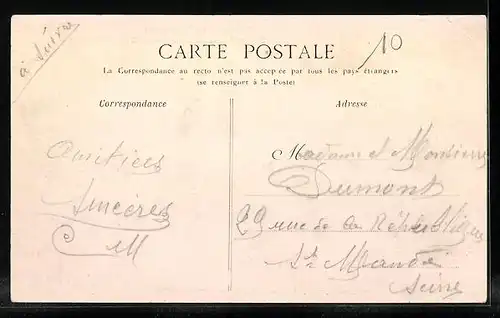 à suivre
10
CARTE POSTALE
La Correspondance au recto n'est pas acceptée par tous les pays étrangers
(se renseigner à la Poste)
Correspondance
Adresse
Amitiées
Sincères
M
Madame et Monsieur
Dumont
29 rue de la République
St Mandé
Seine